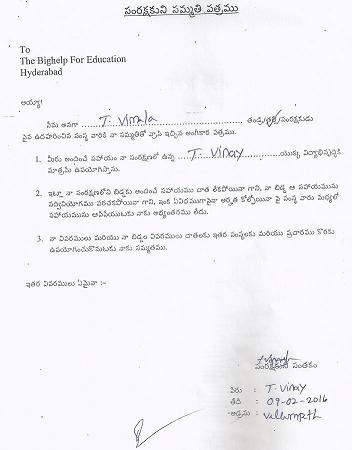 సంరక్షకుని సమ్మతి పత్రము
To
The Bighelp For Education
Hyderabad
అయ్యా!
నేను అనగా T. Vimala తండ్రి/తల్లి/సంరక్షకుడు
పైన ఉదహరించిన సంస్థ వారికి నా సమ్మతితో వ్రాసి ఇచ్చిన అంగీకార పత్రము.
1. మీరు అందించే సహాయం నా సంరక్షణలో ఉన్న T. Vinay యొక్క విద్యాభివృద్ధికి
మాత్రమే ఉపయోగిస్తాను.
2. ఇట్లా నా సంరక్షణలోని బిడ్డకు అందించే సహాయము దాత లేకపోయినా గాని, నా బిడ్డ ఆ సహాయమును
సద్వినియోగము పరచకపోయినా గాని, ఇంక ఏవిధముగానైనా అర్హత కోల్పోయినా పై సంస్థ వారు మధ్యలో
సహాయమును ఆపివేయుటకు నాకు అభ్యంతరము లేదు.
3. నా వివరములు మరియు నా బిడ్డల వివరములు దాతలకు ఇతర సంస్థలకు మరియు ప్రచారము కొరకు
ఉపయోగించుకొనుటకు నాకు సమ్మతము.
ఇతర వివరములు ఏమైనా :-
సంరక్షకుని సంతకం
పేరు : T. Vinay
తేది : 09-02-2016
అడ్రసు :